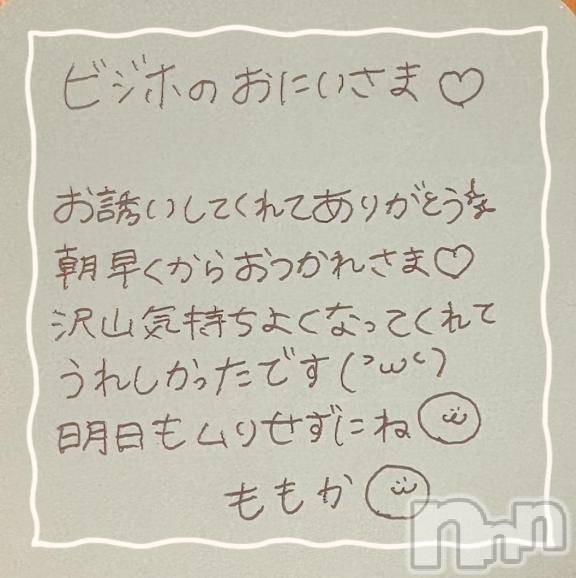 ビジホのおにいさま♡
お誘いしてくれてありがとう☆
朝早くからおつかれさま♡
沢山気持ちよくなってくれて
うれしかったです(˃ω˂)
明日もムリせずにね
ももか
nnn